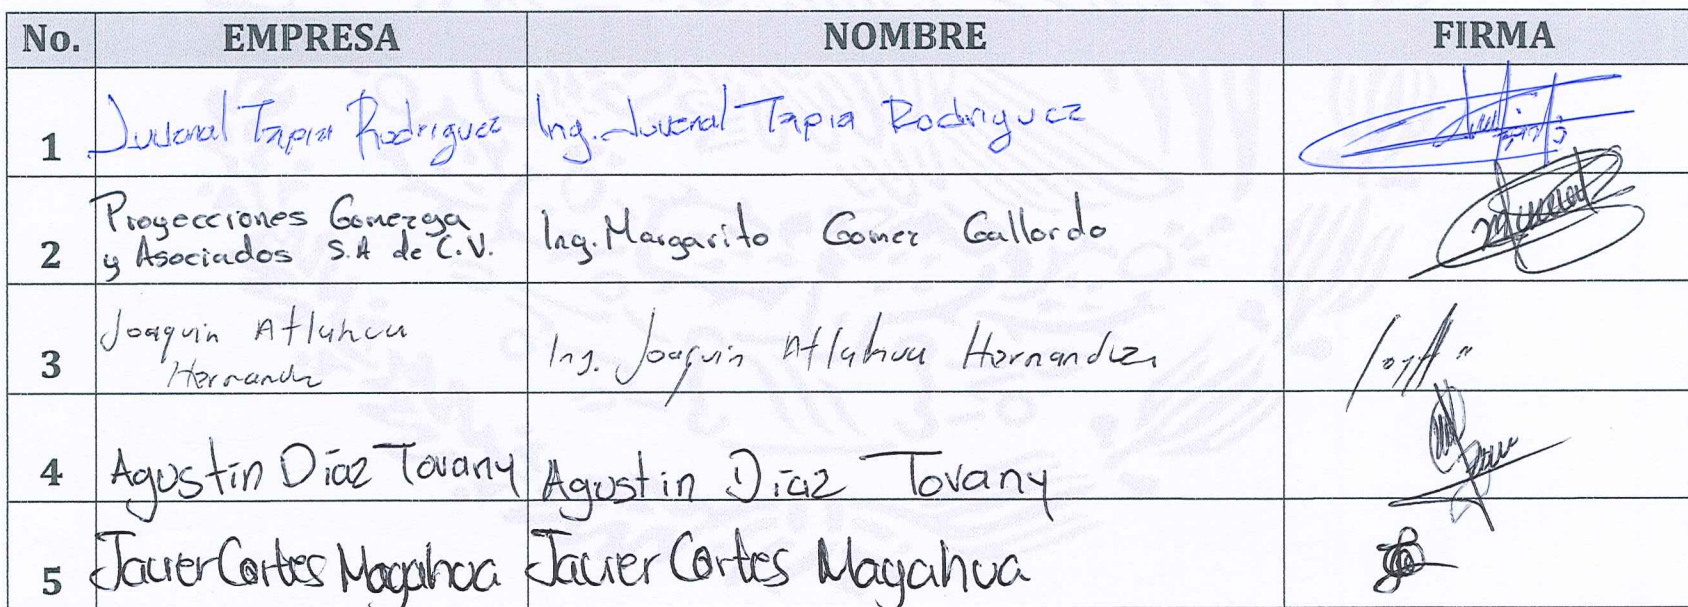 No. EMPRESA NOMBRE FIRMA
1 Juvenal Tapia Rodriguez Ing. Juvenal Tapia Rodriguez
2 Proyecciones Gomezga y Asociados S.A de C.V. Ing. Margarito Gomez Gallardo
3 Joaquin Atlahua Hernandez Ing. Joaquin Atlahua Hernandez
4 Agustin Díaz Tovany Agustin Díaz Tovany
5 Javier Cortes Magahua Javier Cortes Magahua